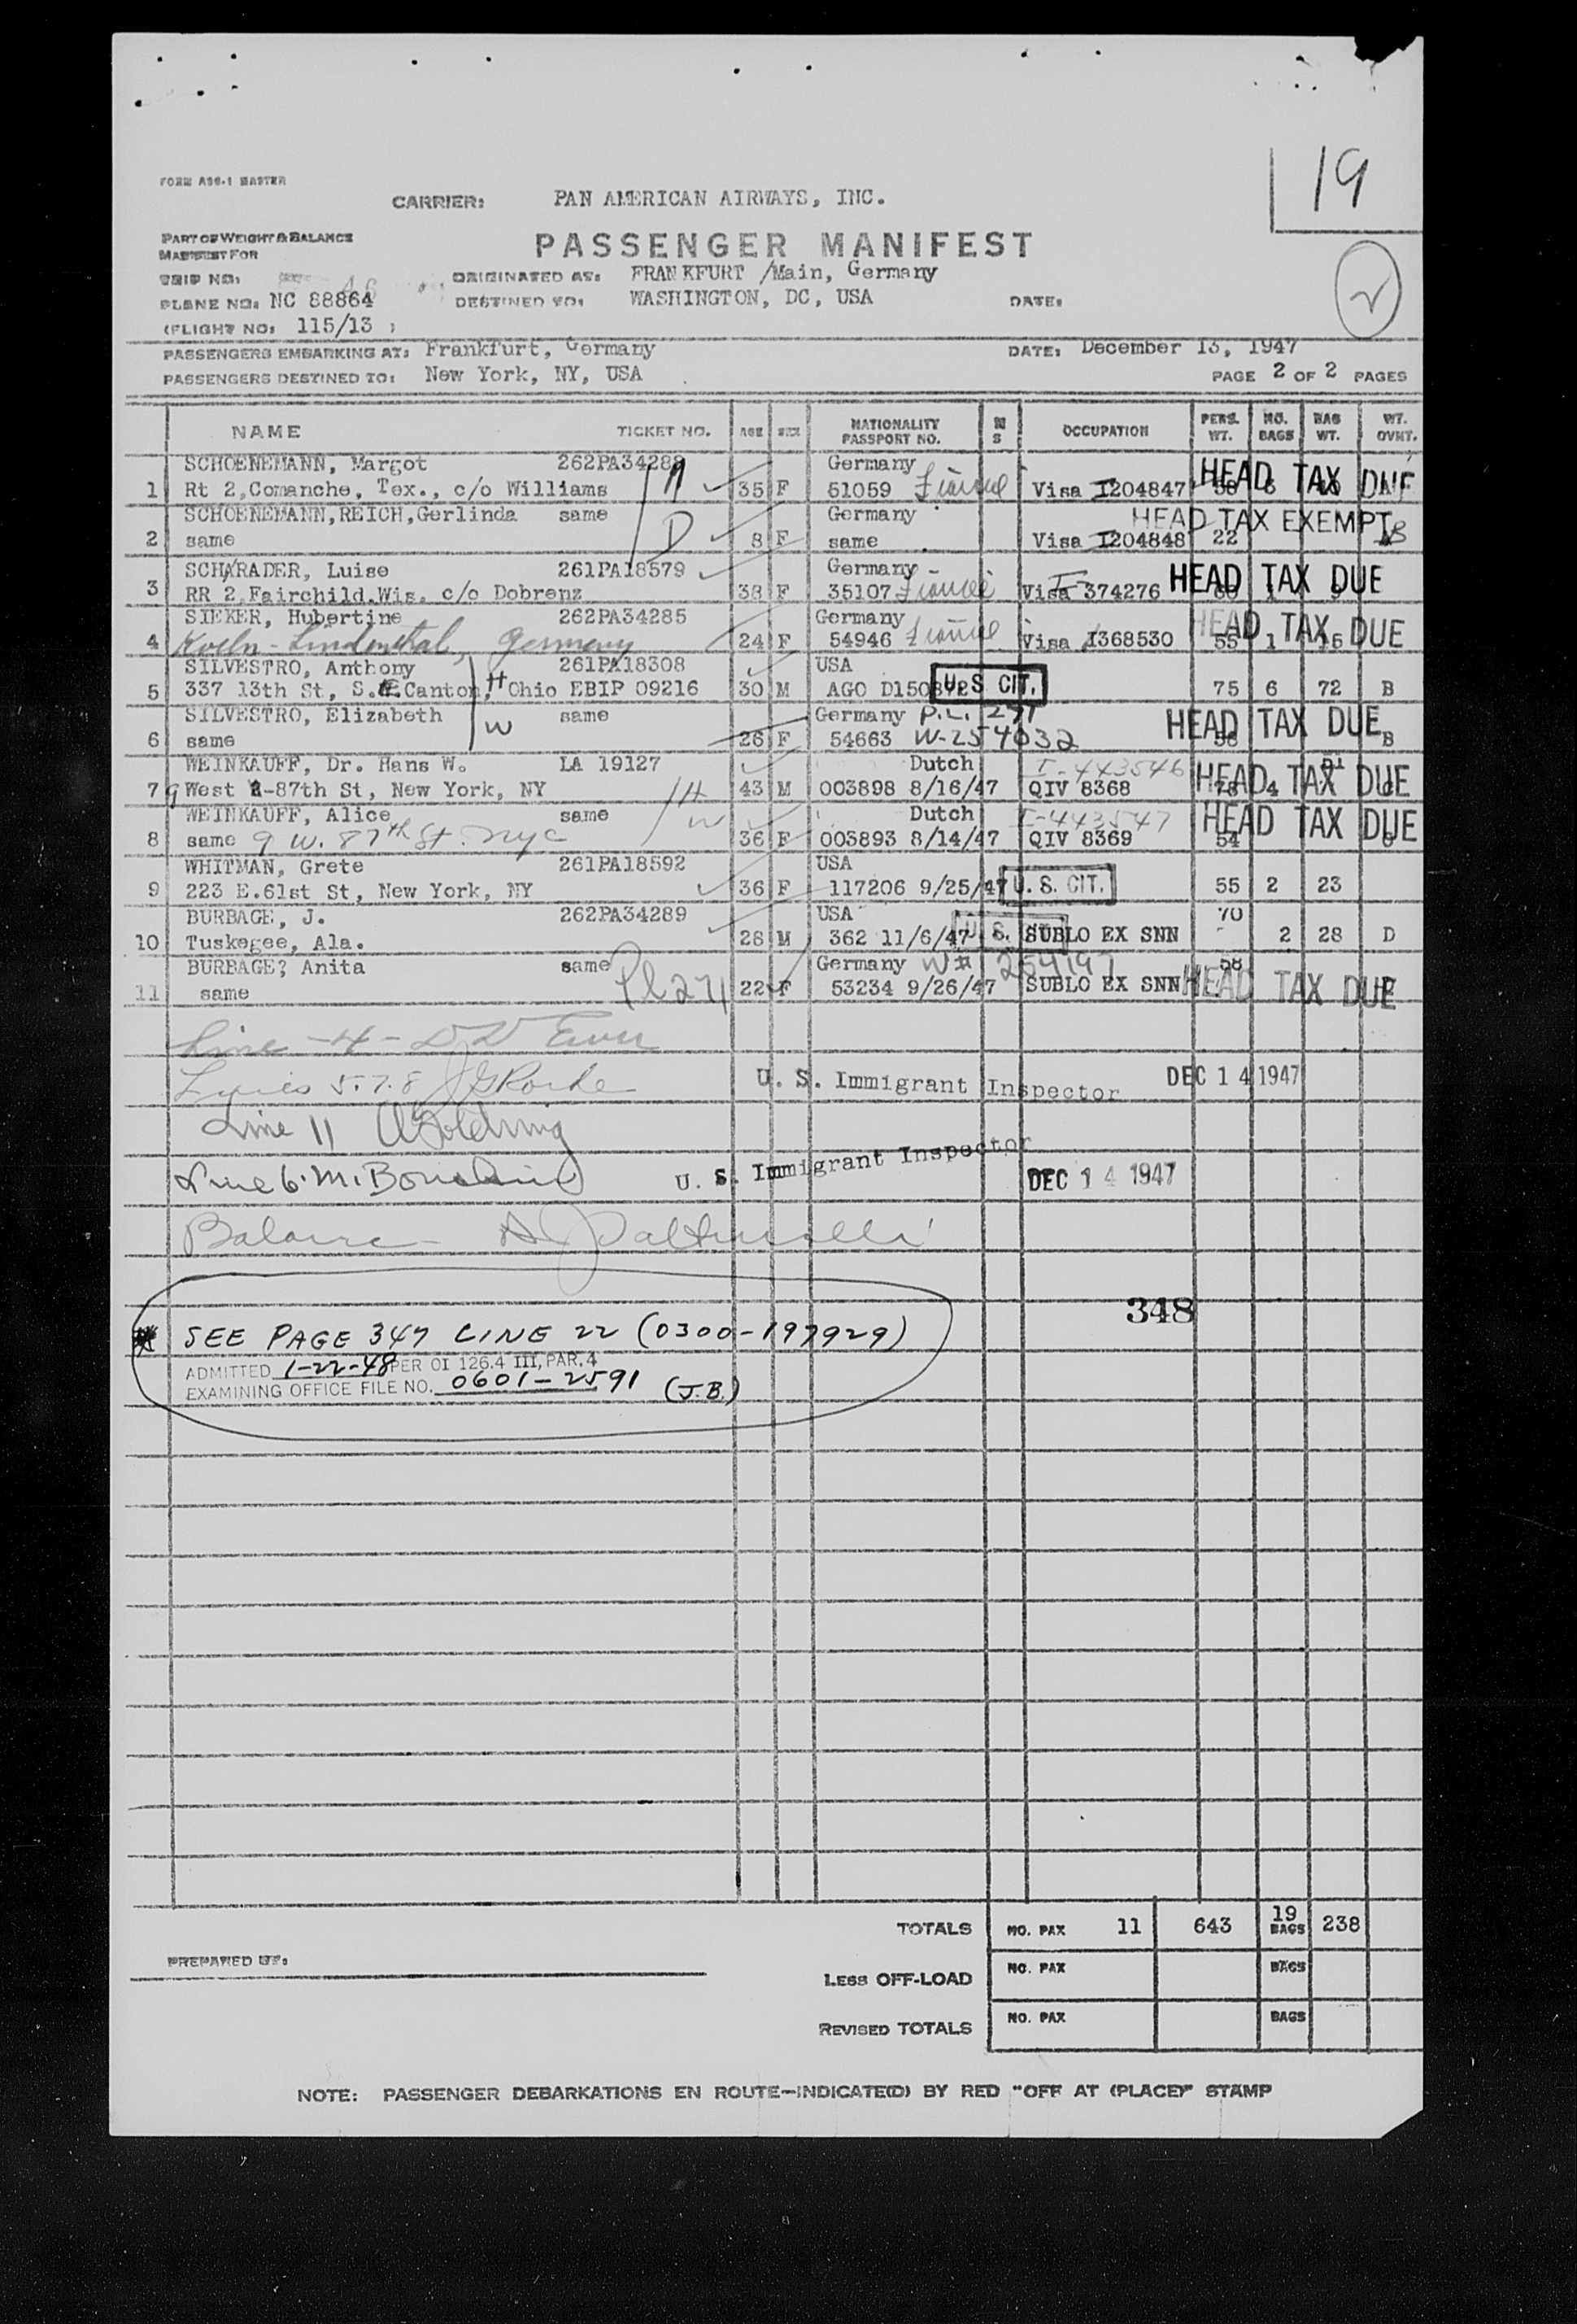 19
FORM ASG-1 MASTER
CARRIER: PAN AMERICAN AIRWAYS, INC.
PART OF WEIGHT & BALANCE
MANIFEST FOR
PASSENGER MANIFEST
TRIP NO:
ORIGINATED AT: FRANKFURT /Main, Germany
PLANE NO: NC 88864
DESTINED TO: WASHINGTON, DC, USA
DATE:
(FLIGHT NO: 115/13 )
PASSENGERS EMBARKING AT: Frankfurt, Germany
DATE: December 13, 1947
PASSENGERS DESTINED TO: New York, NY, USA
PAGE 2 OF 2 PAGES
NAME TICKET NO. AGE SEX NATIONALITY PASSPORT NO. M S OCCUPATION PERS. WT. NO. BAGS BAG WT. WT. OVHT.
SCHOENEMANN, Margot 262PA34288 Germany HEAD TAX DUE
1 Rt 2,Comanche, Tex., c/o Williams 35 F 51059 Visa I204847 58
SCHOENEMANN,REICH,Gerlinda same D Germany HEAD TAX EXEMPT
2 same 8 F same Visa I204848 22
SCHARADER, Luise 261PA18579 Germany HEAD TAX DUE
3 RR 2,Fairchild.Wis. c/o Dobrenz 38 F 35107 Visa I-374276
SIEKER, Hubertine 262PA34285 Germany HEAD TAX DUE
4 Koeln-Lindenthal, Germany 24 F 54946 Visa I368530 55 1 15
SILVESTRO, Anthony 261PA18308 USA
5 337 13th St, S.E.Canton, H Ohio EBIP 09216 30 M AGO U.S CIT. 75 6 72 B
SILVESTRO, Elizabeth same W Germany P.L. 271 HEAD TAX DUE
6 same 26 F 54663 W-254032 56 B
WEINKAUFF, Dr. Hans W. LA 19127 Dutch I-443546 HEAD TAX DUE
7 9 West 87th St, New York, NY H 43 M 003898 8/16/47 QIV 8368 4
WEINKAUFF, Alice same W Dutch I-443547 HEAD TAX DUE
8 same 9 W. 87th St. NYC 36 F 003893 8/14/47 QIV 8369 54
WHITMAN, Grete 261PA18592 USA
9 223 E.61st St, New York, NY 36 F 117206 9/25/47 U. S. CIT. 55 2 23
BURBAGE, J. 262PA34289 USA 70
10 Tuskegee, Ala. 28 M 362 11/6/47 U. S. SUBLO EX SNN 2 28 D
BURBAGE? Anita same Pl 271 Germany W# 254197 58
11 same 22 F 53234 9/26/47 SUBLO EX SNN HEAD TAX DUE
Line -4-
Lines 5.7.8 U. S. Immigrant Inspector DEC 14 1947
Line 11
Line 6. U. S. Immigrant Inspector DEC 14 1947
Balance
348
SEE PAGE 347 LINE 22 (0300-197929)
ADMITTED 1-22-48 PER OI 126.4 III, PAR. 4
EXAMINING OFFICE FILE NO. 0601-2591 (J.B.)
TOTALS NO. PAX 11 643 19 BAGS 238
PREPARED BY:
LESS OFF-LOAD NO. PAX BAGS
REVISED TOTALS NO. PAX BAGS
NOTE: PASSENGER DEBARKATIONS EN ROUTE—INDICATE(D) BY RED "OFF AT (PLACE)" STAMP